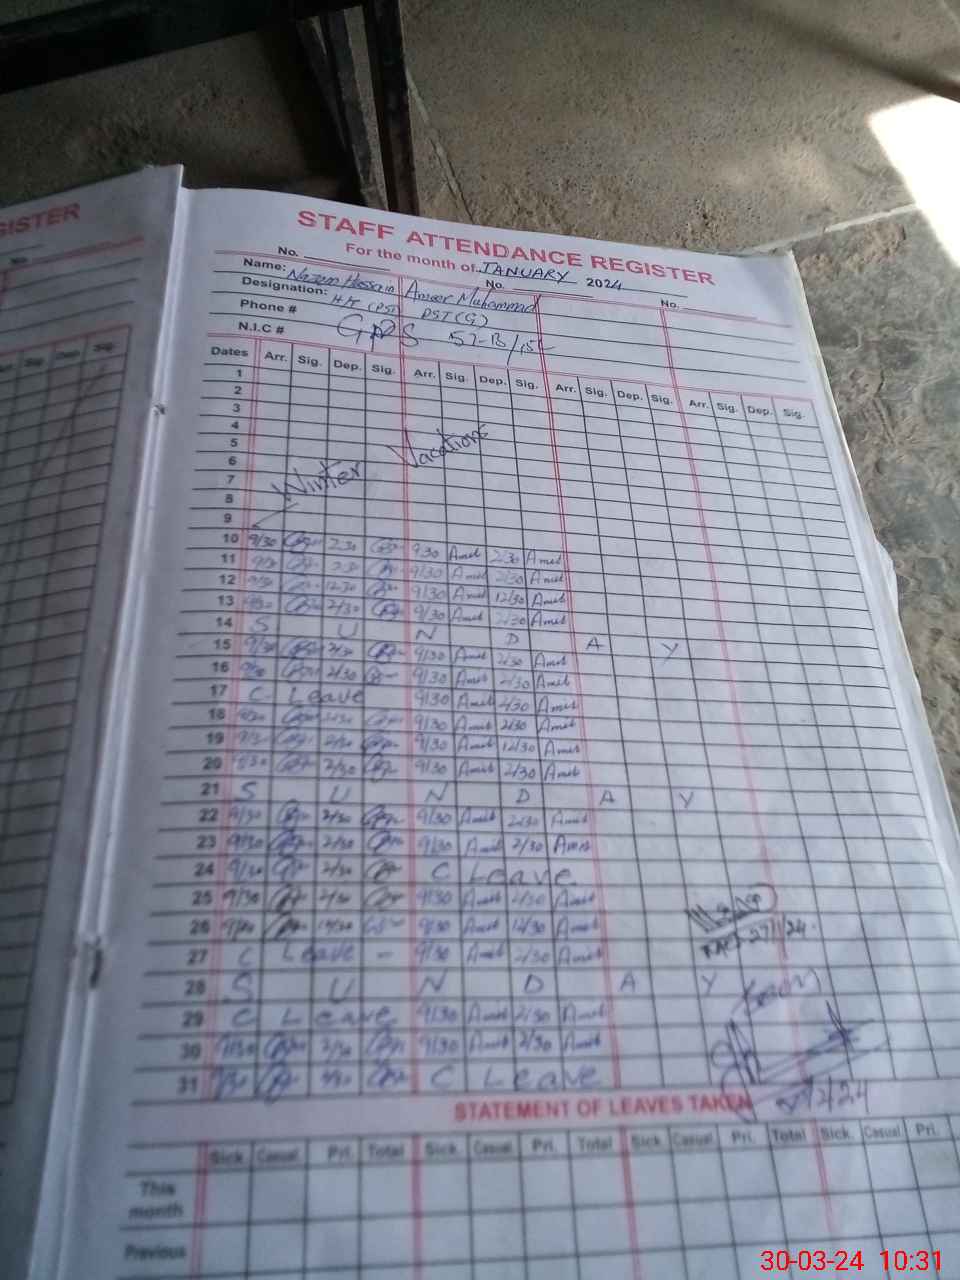 GISTER
STAFF ATTENDANCE REGISTER
For the month of JANUARY 2024
No. No. No.
Name: Nazem Hossain Ameer Muhammad
Designation: PST (G)
Phone # GPS 52-B/
N.I.C #
Dates Arr. Sig. Dep. Sig. Arr. Sig. Dep. Sig. Arr. Sig. Dep. Sig. Arr. Sig. Dep. Sig.
1
2
3
4
5
6
7
8
9
Winter Vacations
10 9/30 2:30 9:30 Amet 2/30 Amet
11 9/30 2:30 9/30 Amet 2/30 Amet
12 9/30 12:30 9/30 Amet 12/30 Amet
13 9/30 2/30 9/30 Amet 2/30 Amet
14 S U N D A Y
15 9/30 2/30 9/30 Amet 2/30 Amet
16 9/30 2/30 9/30 Amet 2/30 Amet
17 C. Leave 9/30 Amet 2/30 Amet
18 9/30 2/30 9/30 Amet 2/30 Amet
19 9/30 9/30 Amet 12/30 Amet
20 9/30 2/30 9/30 Amet 2/30 Amet
21 S U N D A Y
22 9/30 2/30 9/30 Amet 2/30 Amet
23 9/30 2/30 9/30 Amet 2/30 Amet
24 9/30 2/30 C Leave
25 9/30 2/30 9/30 Amet 2/30 Amet
26 9/30 12/30 9/30 Amet 12/30 Amet
27 C Leave - 9/30 Amet 2/30 Amet
28 S U N D A Y
29 C Leave 9/30 Amet 2/30 Amet
30 9/30 2/30 9/30 Amet 2/30 Amet
31 9/30 2/30 C Leave
27/1/24.
STATEMENT OF LEAVES TAKEN
Sick. Casual. Pri. Total Sick. Casual. Pri. Total Sick. Casual. Pri. Total Sick. Casual Pri.
This
month
Previous
30-03-24 10:31